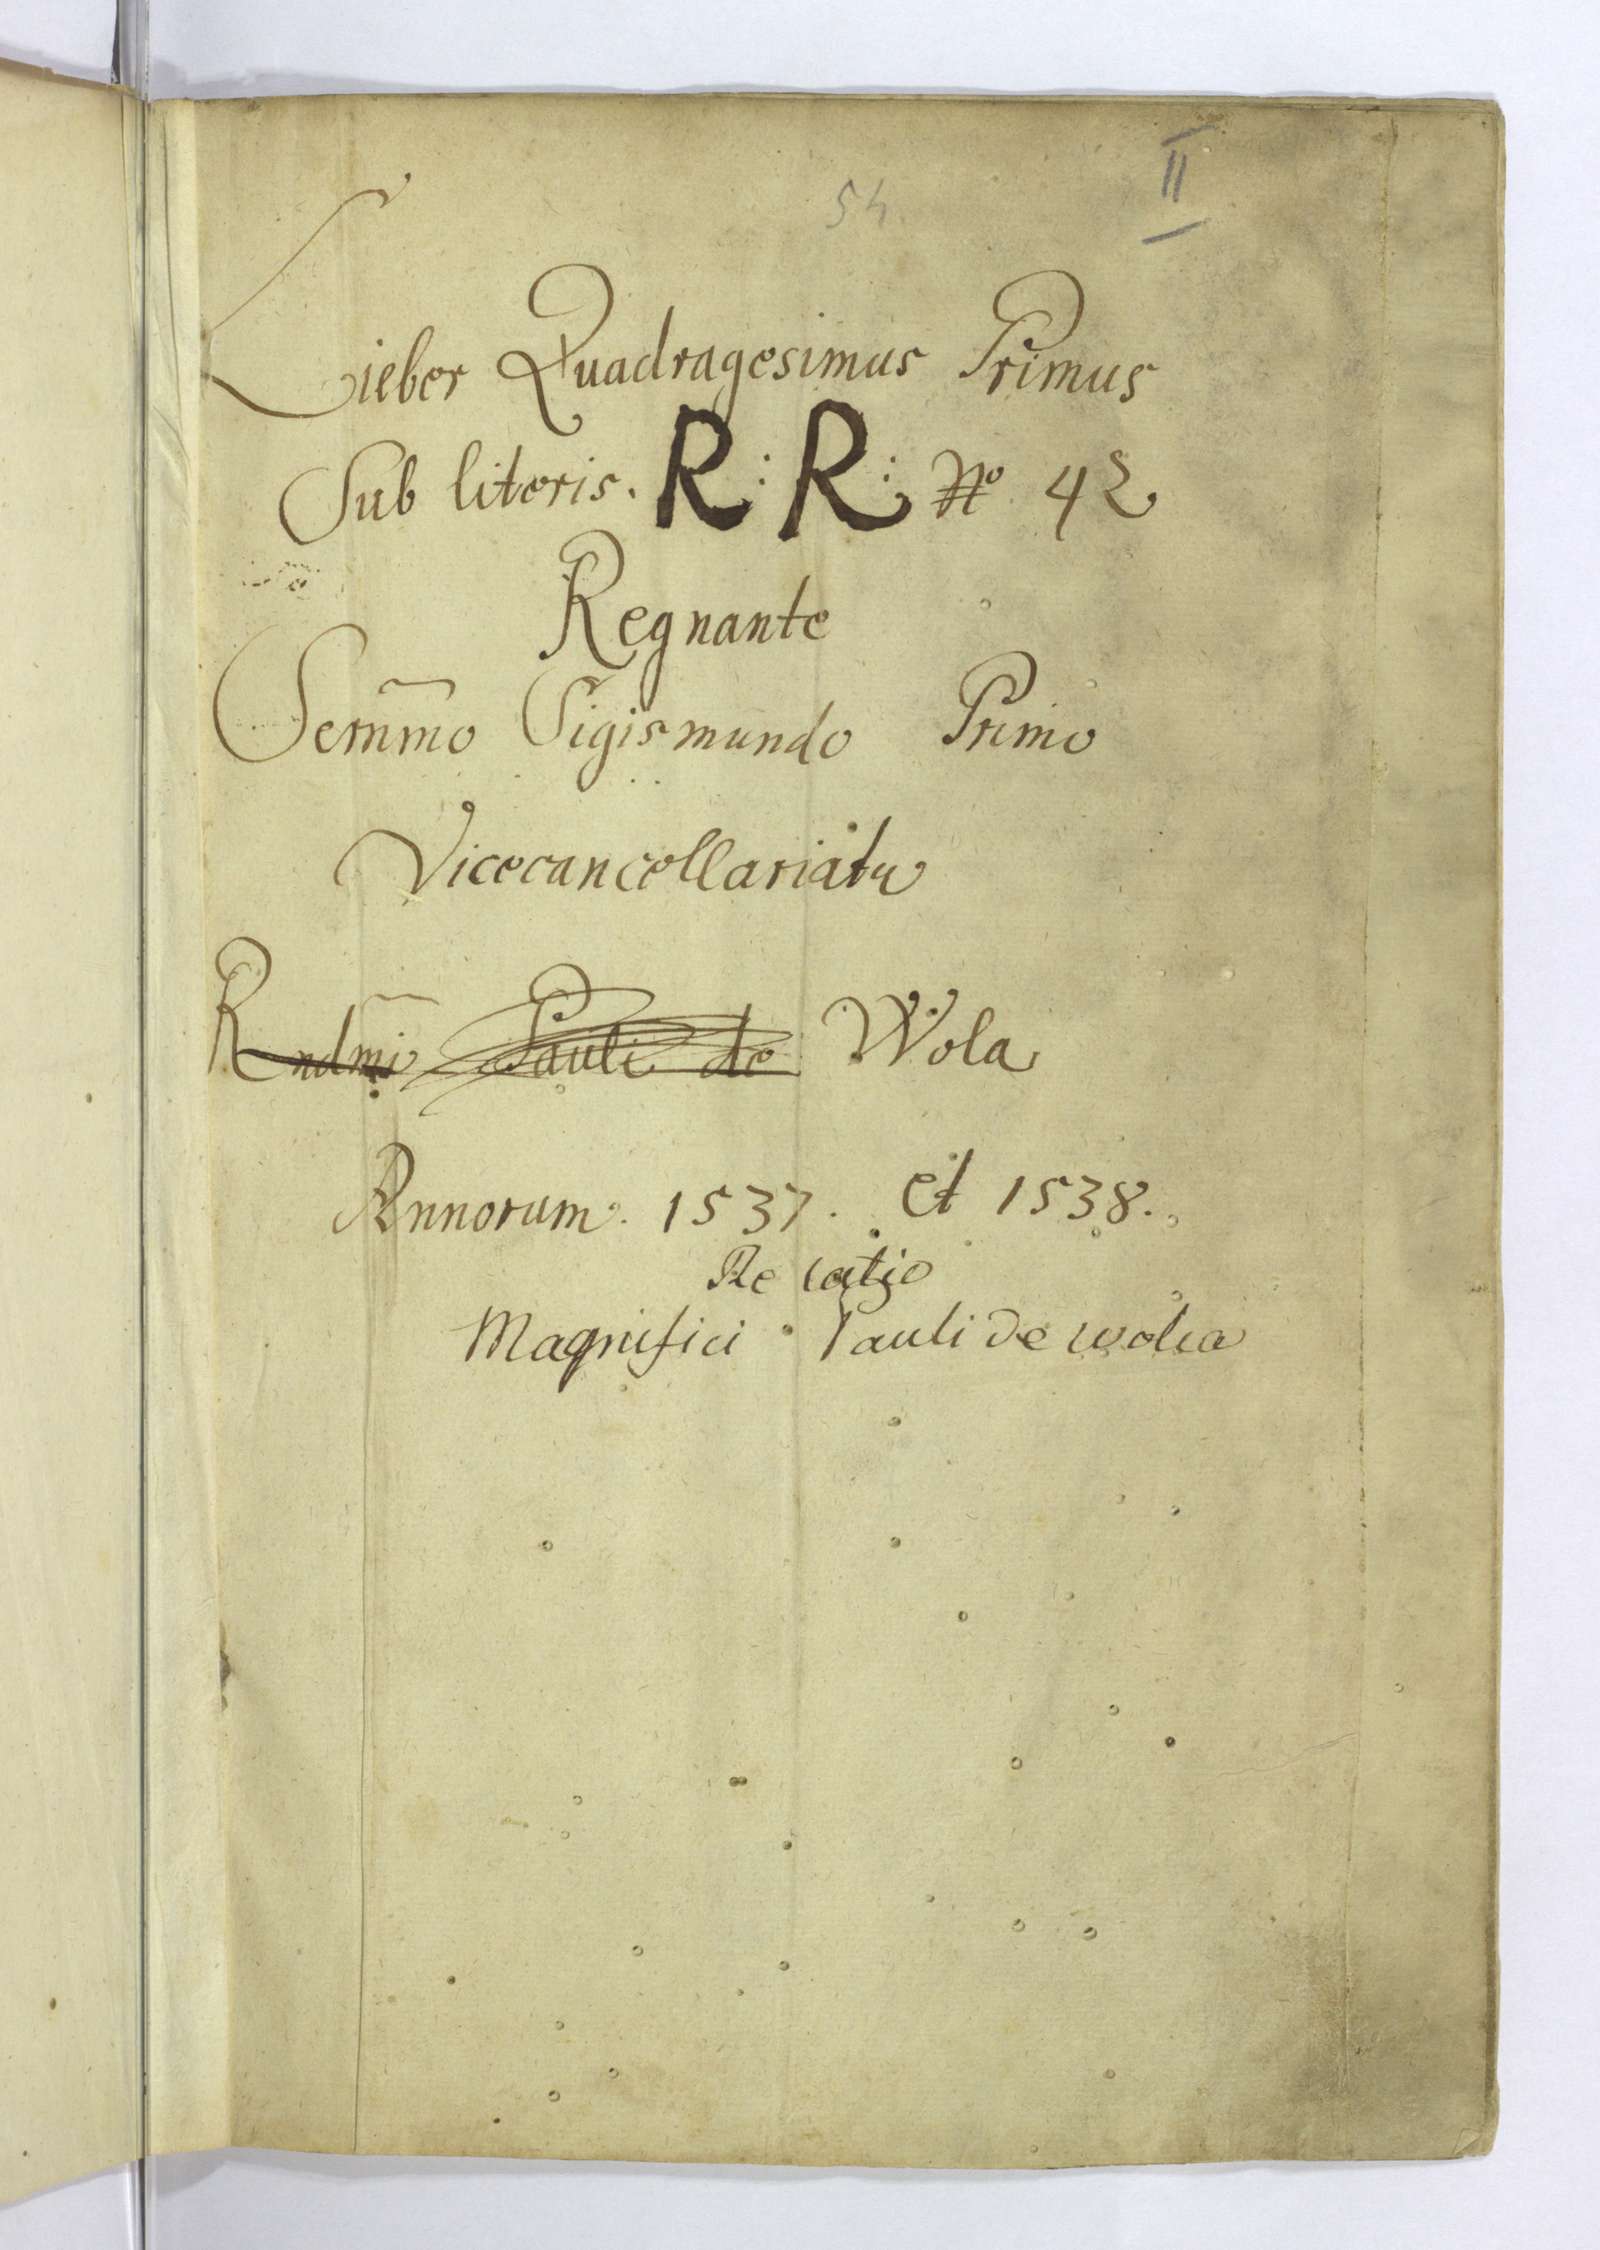 54.
II
Lieber Quadragesimus Primus
Sub literis. R: R: No 42
Regnante
Sernmo Sigismundo Primo
Vicecancellariatu
Rndmi Pauli de Wola
Annorum. 1537. et 1538.
Relatio
Magnifici Pauli de wolia